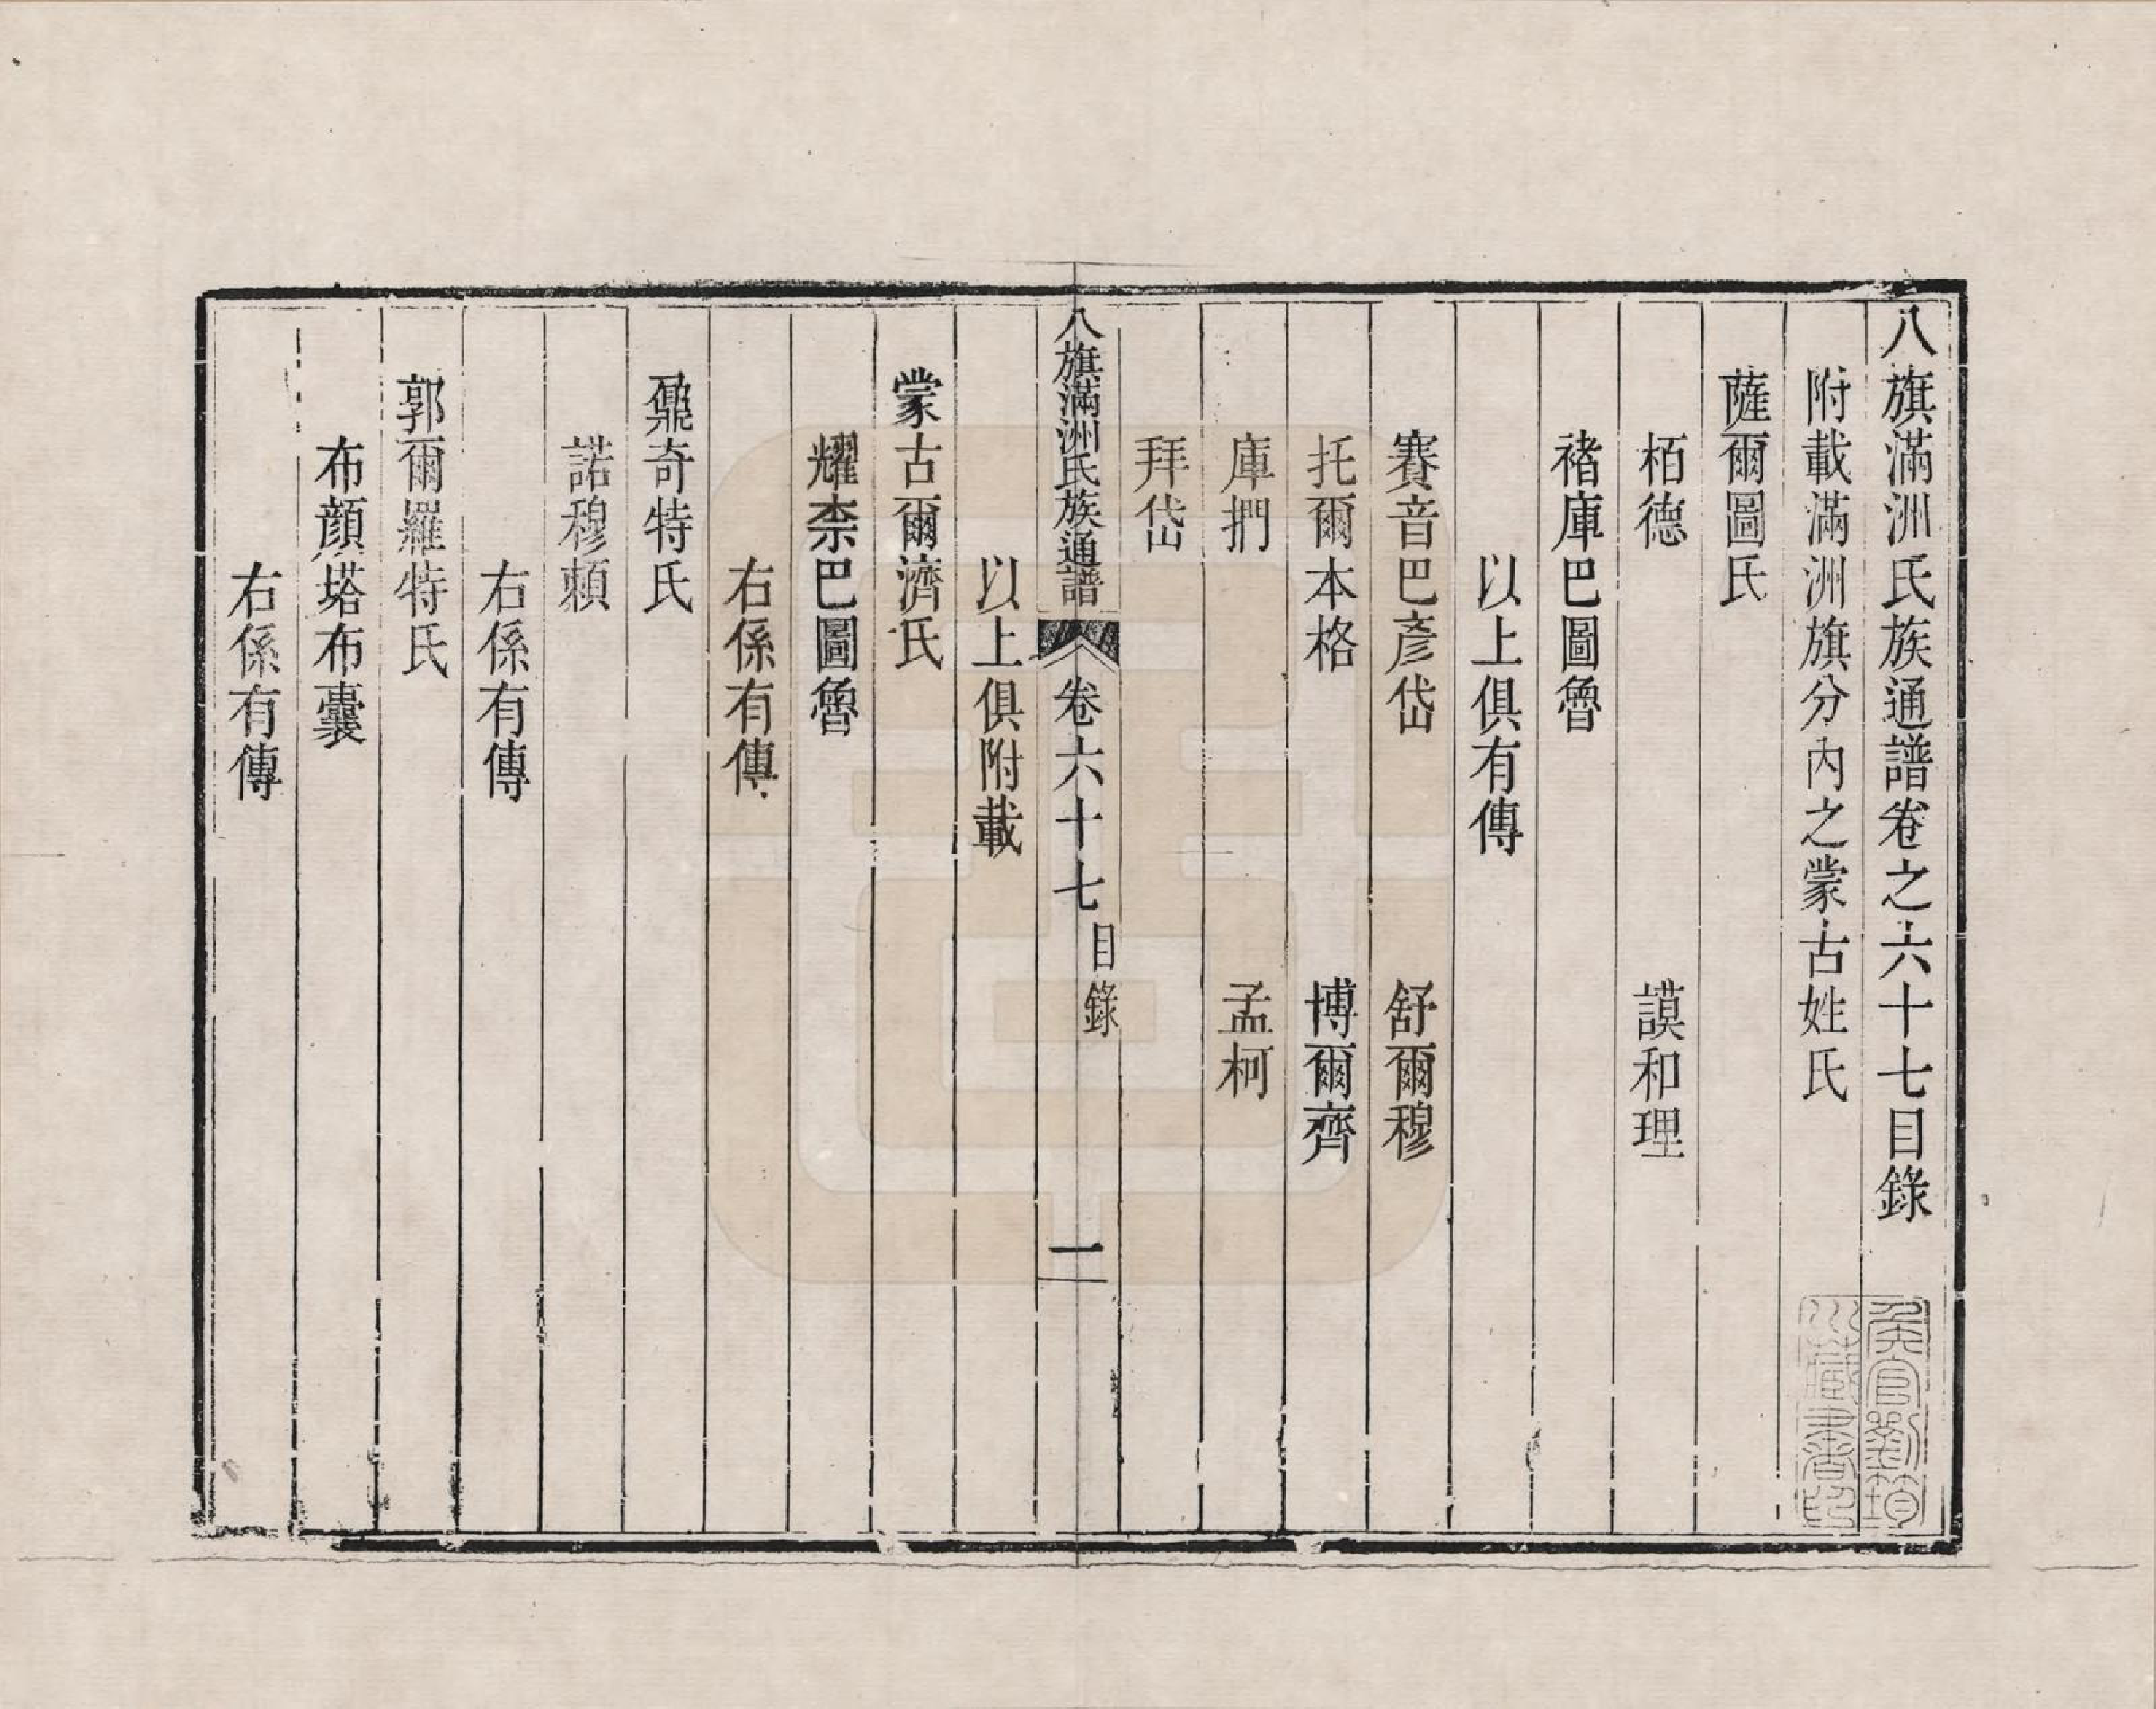 八旗滿洲氏族通譜卷之六十七目錄
附載滿洲旗分內之蒙古姓氏
薩爾圖氏
栢德 謨和理
褚庫巴圖魯
以上俱有傳
賽音巴彥岱 舒爾穆
托爾本格 博爾齊
庫捫 孟柯
拜岱
八旗滿洲氏族通譜 卷六十七 目錄 一
以上俱附載
蒙古爾濟氏
耀柰巴圖魯
右係有傳
鼐奇特氏
諾穆頼
右係有傳
郭爾羅特氏
布顔塔布囊
右係有傳
侯官劉筠
川藏書印